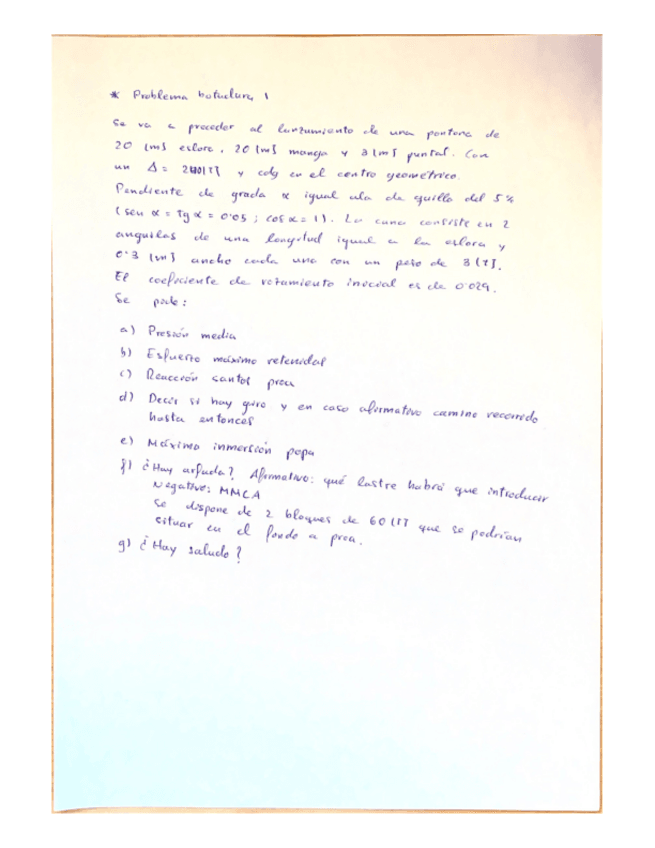 * Problema botadura 1
Se va a proceder al lanzamiento de una pontona de
20 [m] eslora, 20 [m] manga y 3 [m] puntal. Con
un Δ = [T] y cdg en el centro geométrico.
Pendiente de grada α igual a la de quilla del 5%
(sen α = tg α = 0'05 ; cos α = 1). La cuna consiste en 2
anguilas de una longitud igual a la eslora y
0'3 [m] ancho cada una con un peso de 3 [T].
El coeficiente de rozamiento inicial es de 0'029.
Se pide:
a) Presión media
b) Esfuerzo máximo retenidas
c) Reacción santos proa
d) Decir si hay giro y en caso afirmativo camino recorrido
hasta entonces
e) Máxima inmersión popa
f) ¿Hay arfada? Afirmativo: qué lastre habrá que introducir
Negativo: MMCA
Se dispone de 2 bloques de 60 [T] que se podrían
situar en el fondo a proa.
g) ¿Hay saludo?